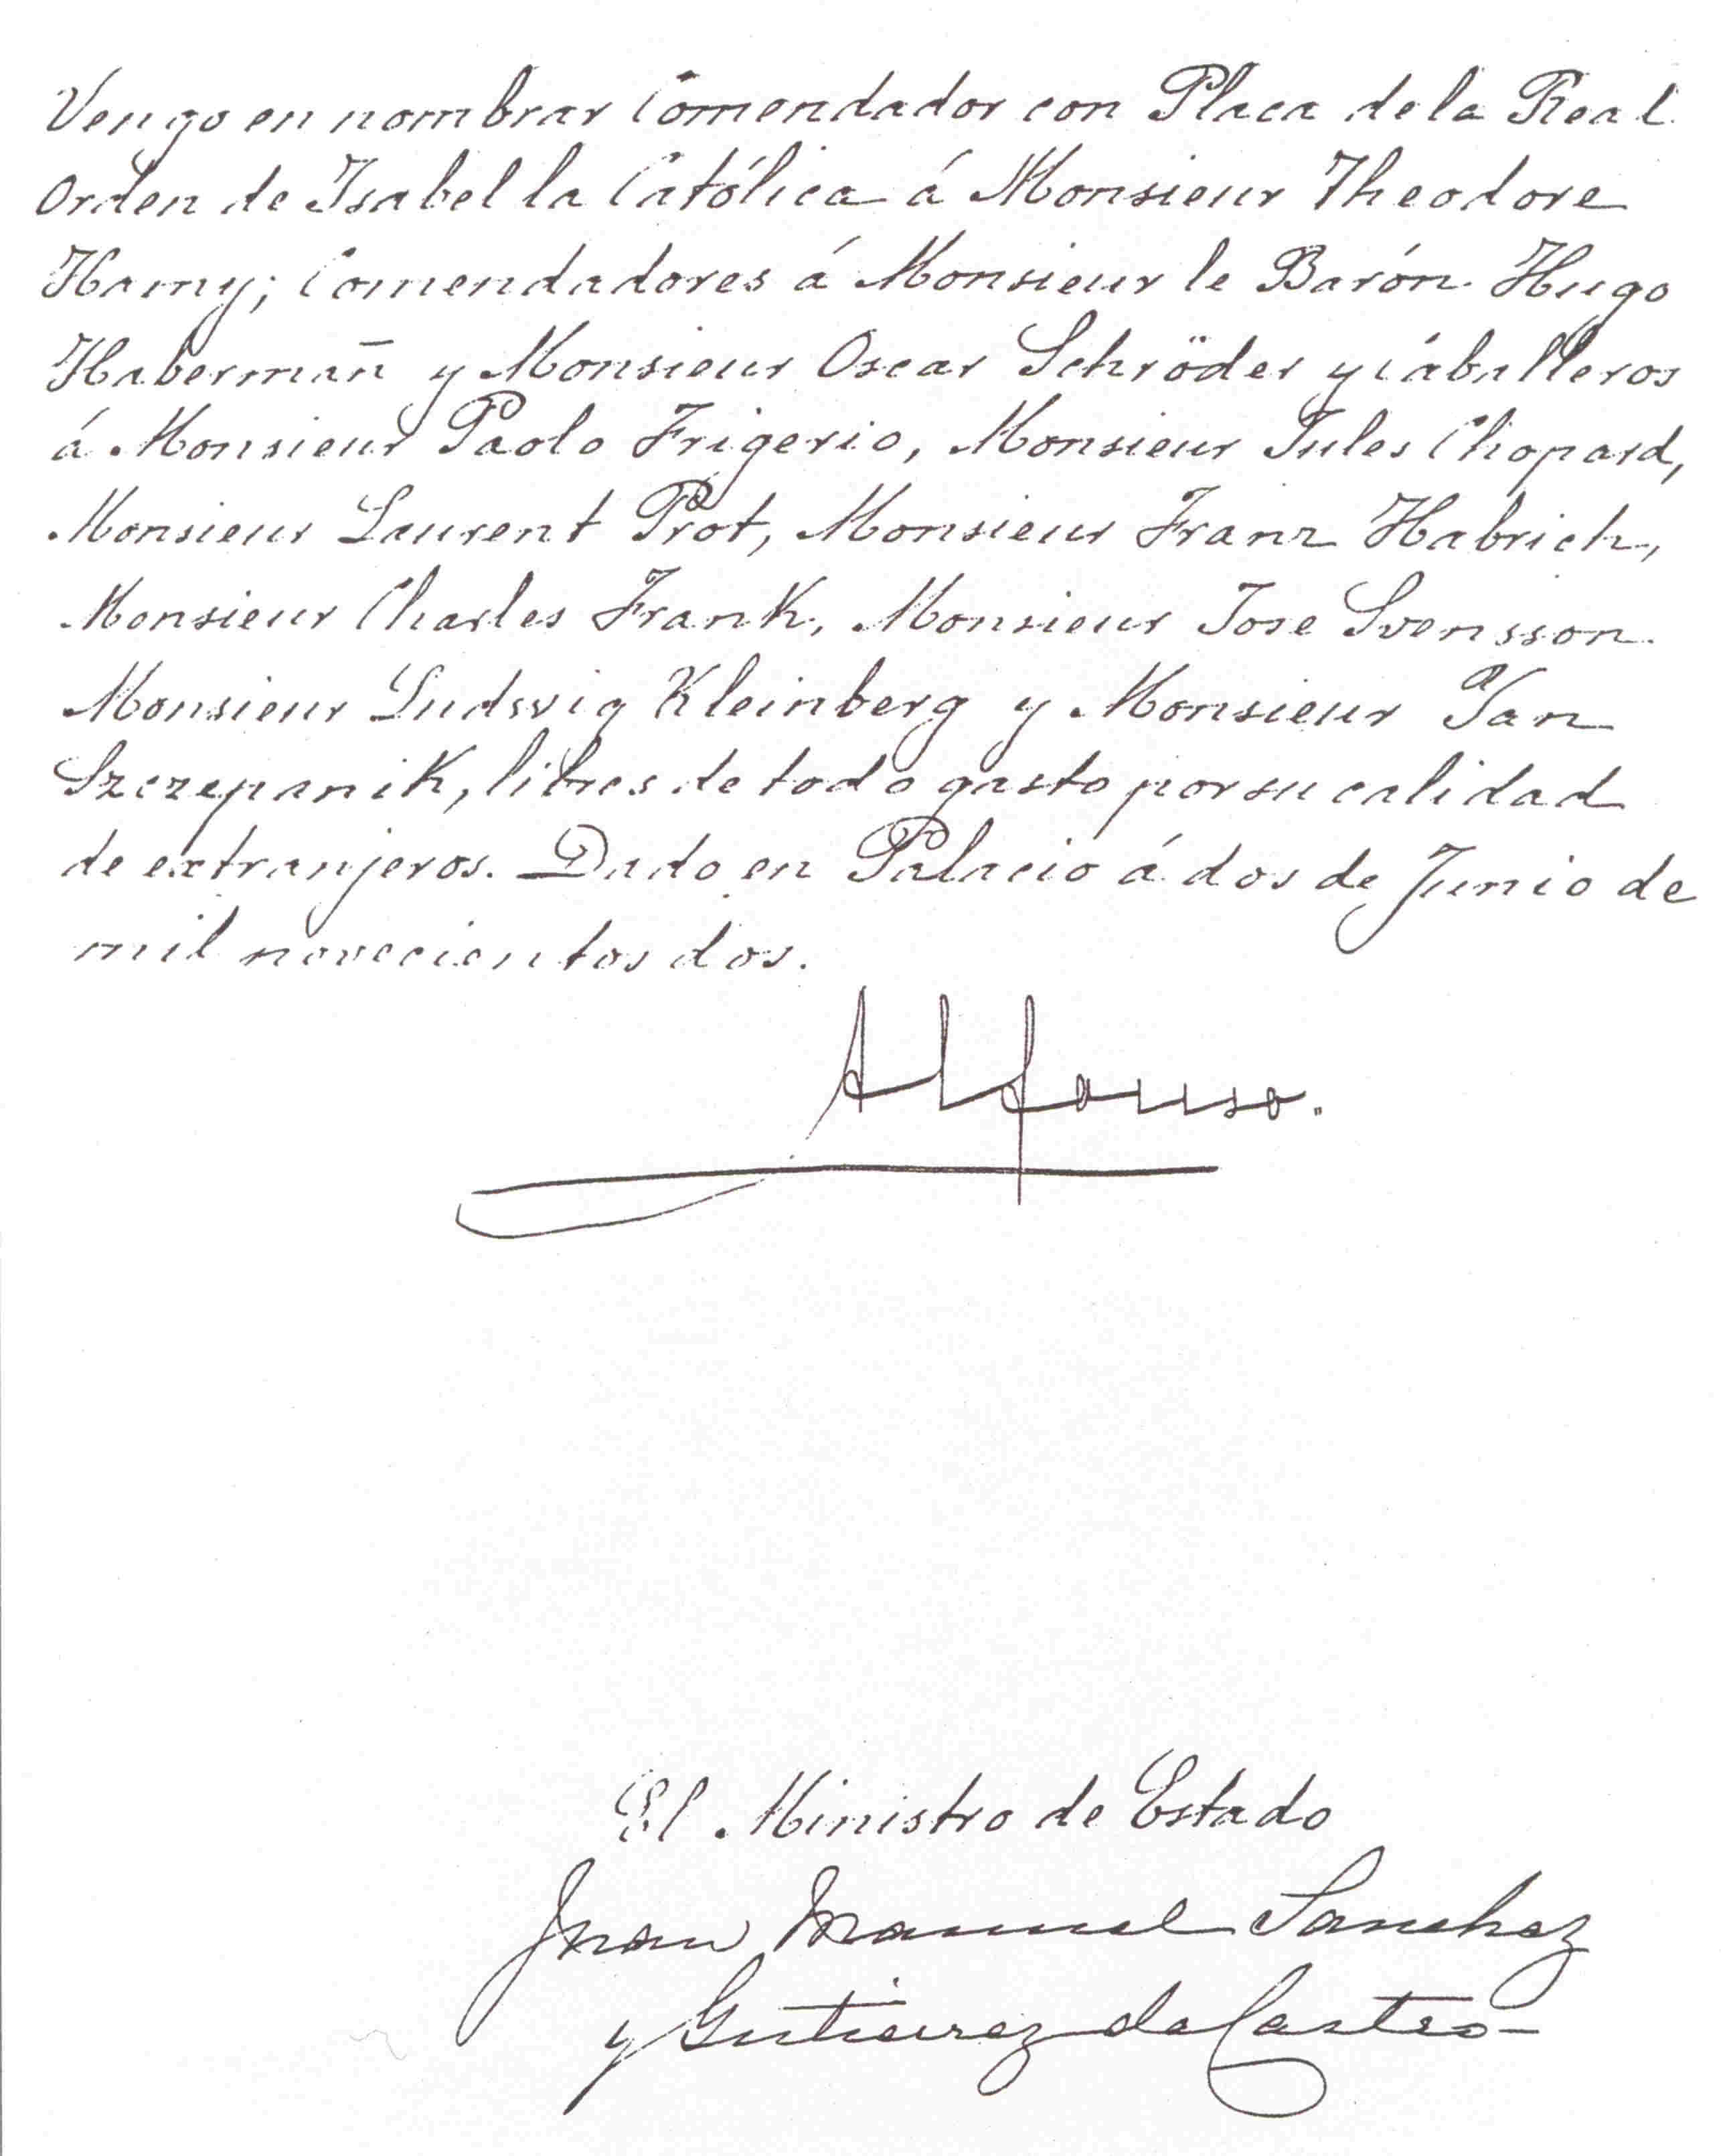 Vengo en nombrar Comendador con Placa de la Real
Orden de Isabel la Católica á Monsieur Theodore
Hamy; Comendadores á Monsieur le Barón Hugo
Habermañ y Monsieur Oscar Schröder y Cáballeros
á Monsieur Paolo Frigerio, Monsieur Jules Chopard,
Monsieur Laurent Prot, Monsieur Franz Habrich,
Monsieur Charles Frank, Monsieur Jose Svensson.
Monsieur Ludwig Kleinberg y Monsieur Jan
Szczepanik, libres de todo gasto por su calidad
de extranjeros. Dado en Palacio á dos de Junio de
mil novecientos dos.
Alfonso.
El Ministro de Estado
Juan Manuel Sanchez
y Gutierrez de Castro